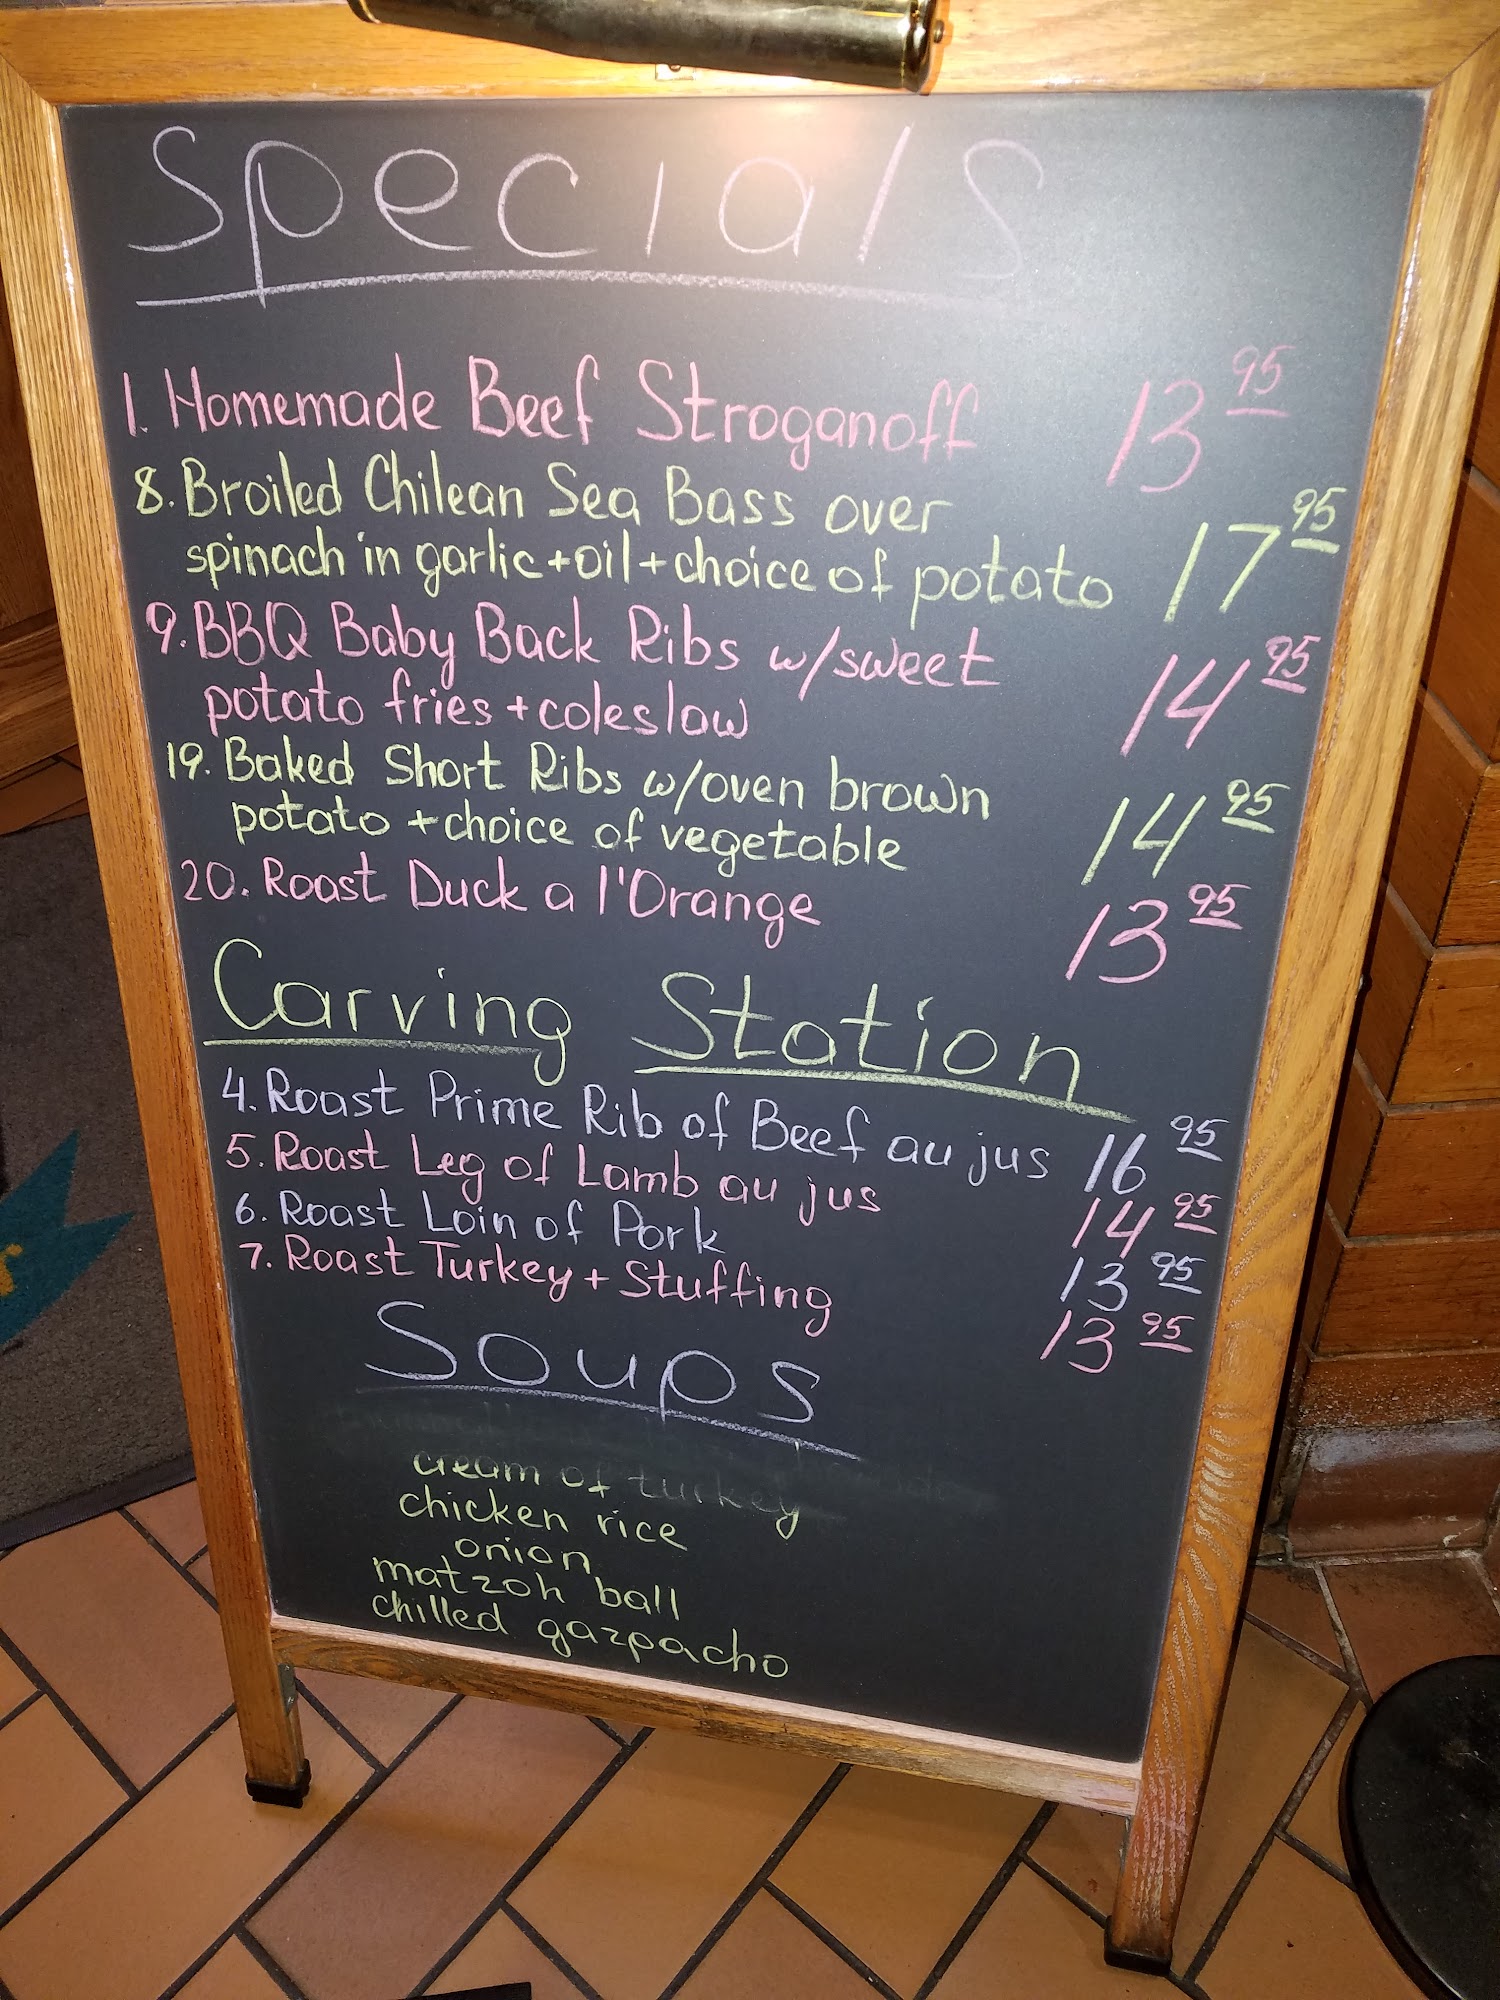 Specials
1. Homemade Beef Stroganoff 13 95
8. Broiled Chilean Sea Bass over
spinach in garlic+oil+choice of potato 17 95
9. BBQ Baby Back Ribs w/sweet
potato fries+coleslaw 14 95
19. Baked Short Ribs w/oven brown
potato +choice of vegetable 14 95
20. Roast Duck a l'Orange 13 95
Carving Station
4. Roast Prime Rib of Beef au jus 16 95
5. Roast Leg of Lamb au jus 14 95
6. Roast Loin of Pork 13 95
7. Roast Turkey + Stuffing 13 95
Soups
cream of turkey
chicken rice
onion
matzoh ball
chilled gazpacho